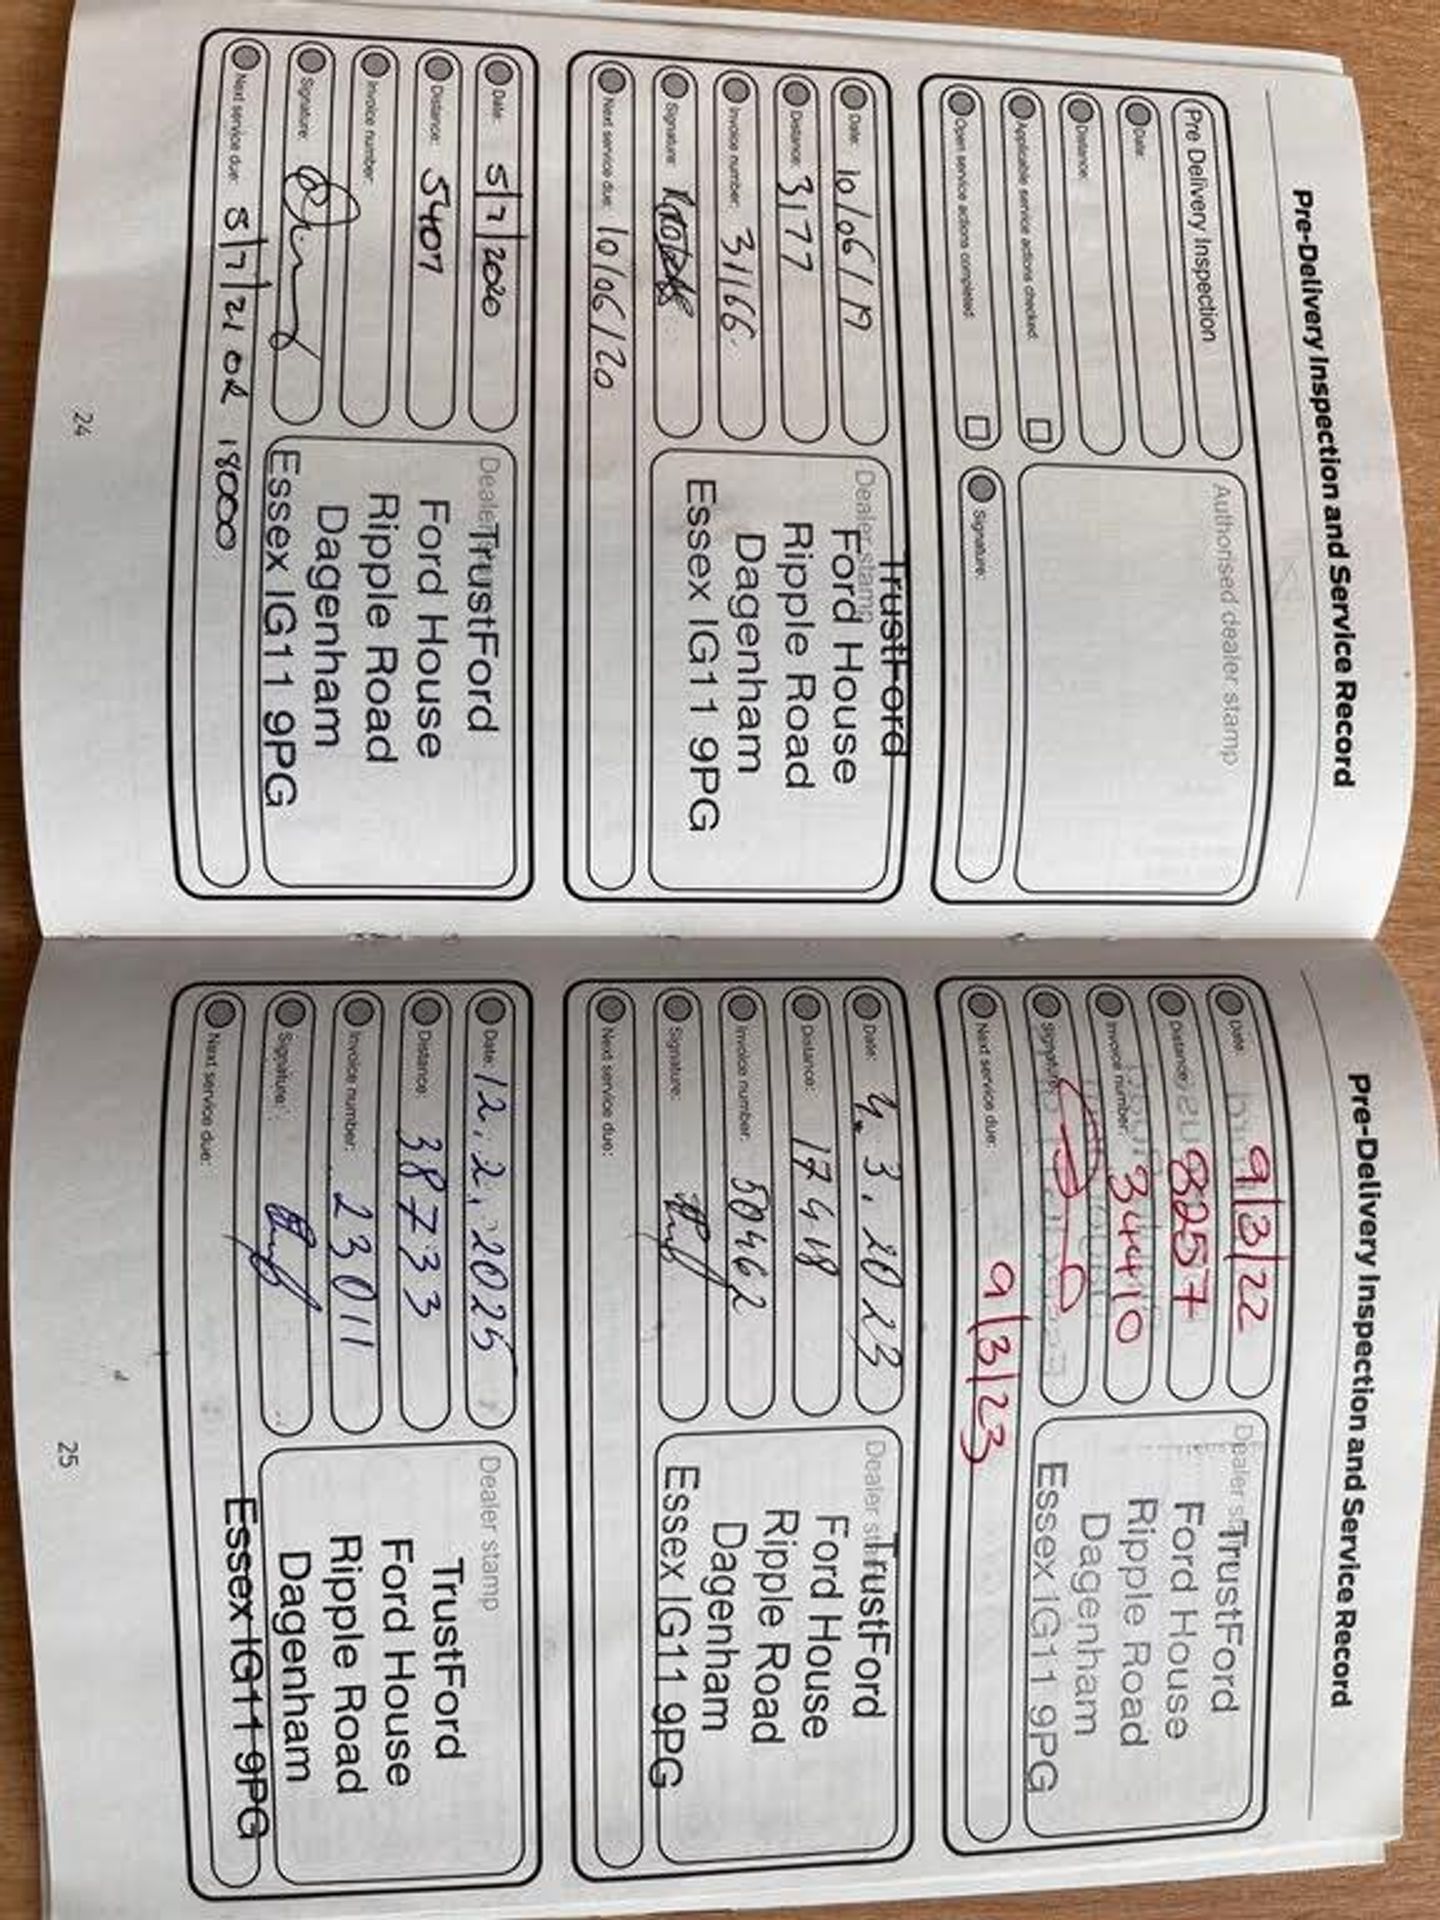 Pre-Delivery Inspection and Service Record
Pre Delivery Inspection
Date:
Distance:
Applicable service actions checked.
Open service actions completed.
Authorised dealer stamp
Signature:
Date: 10/06/19
Distance: 3177
Invoice number: 31166
Signature:
Next service due: 10/06/20
Dealer stamp
TrustFord
Ford House
Ripple Road
Dagenham
Essex IG11 9PG
Date: 5/7/2020
Distance: 5407
Invoice number:
Signature:
Next service due: 5/7/21 OR 18000
Dealer
TrustFord
Ford House
Ripple Road
Dagenham
Essex IG11 9PG
24
Pre-Delivery Inspection and Service Record
Date: 9/3/22
Distance: 8257
Invoice number: 34410
Signature:
Next service due: 9/3/23
Dealer
TrustFord
Ford House
Ripple Road
Dagenham
Essex IG11 9PG
Date: 4.3.2023
Distance: 17418
Invoice number: 50462
Signature:
Next service due:
Dealer
TrustFord
Ford House
Ripple Road
Dagenham
Essex IG11 9PG
Date: 12.2.2025
Distance: 38733
Invoice number: 23011
Signature:
Next service due:
Dealer stamp
TrustFord
Ford House
Ripple Road
Dagenham
Essex IG11 9PG
25